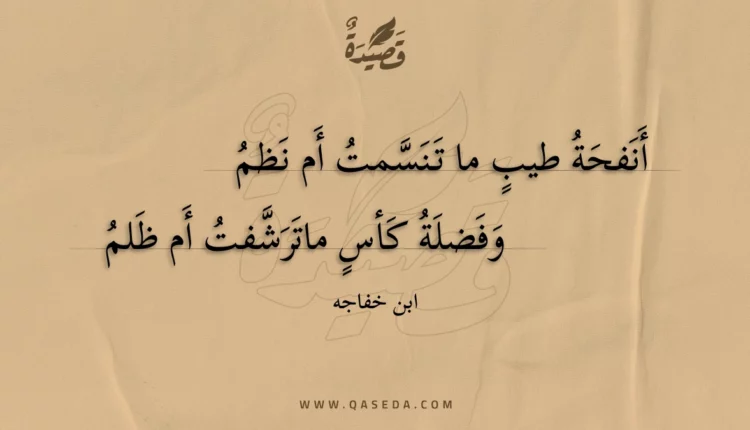 قَصِيدَةٌ
أَنَفحَةُ طيبٍ ما تَنَسَّمتُ أَم نَظمُ
وَفَضلَةُ كَأسٍ ماتَرَشَّفتُ أَم ظَلمُ
ابن خفاجه
WWW.QASEDA.COM